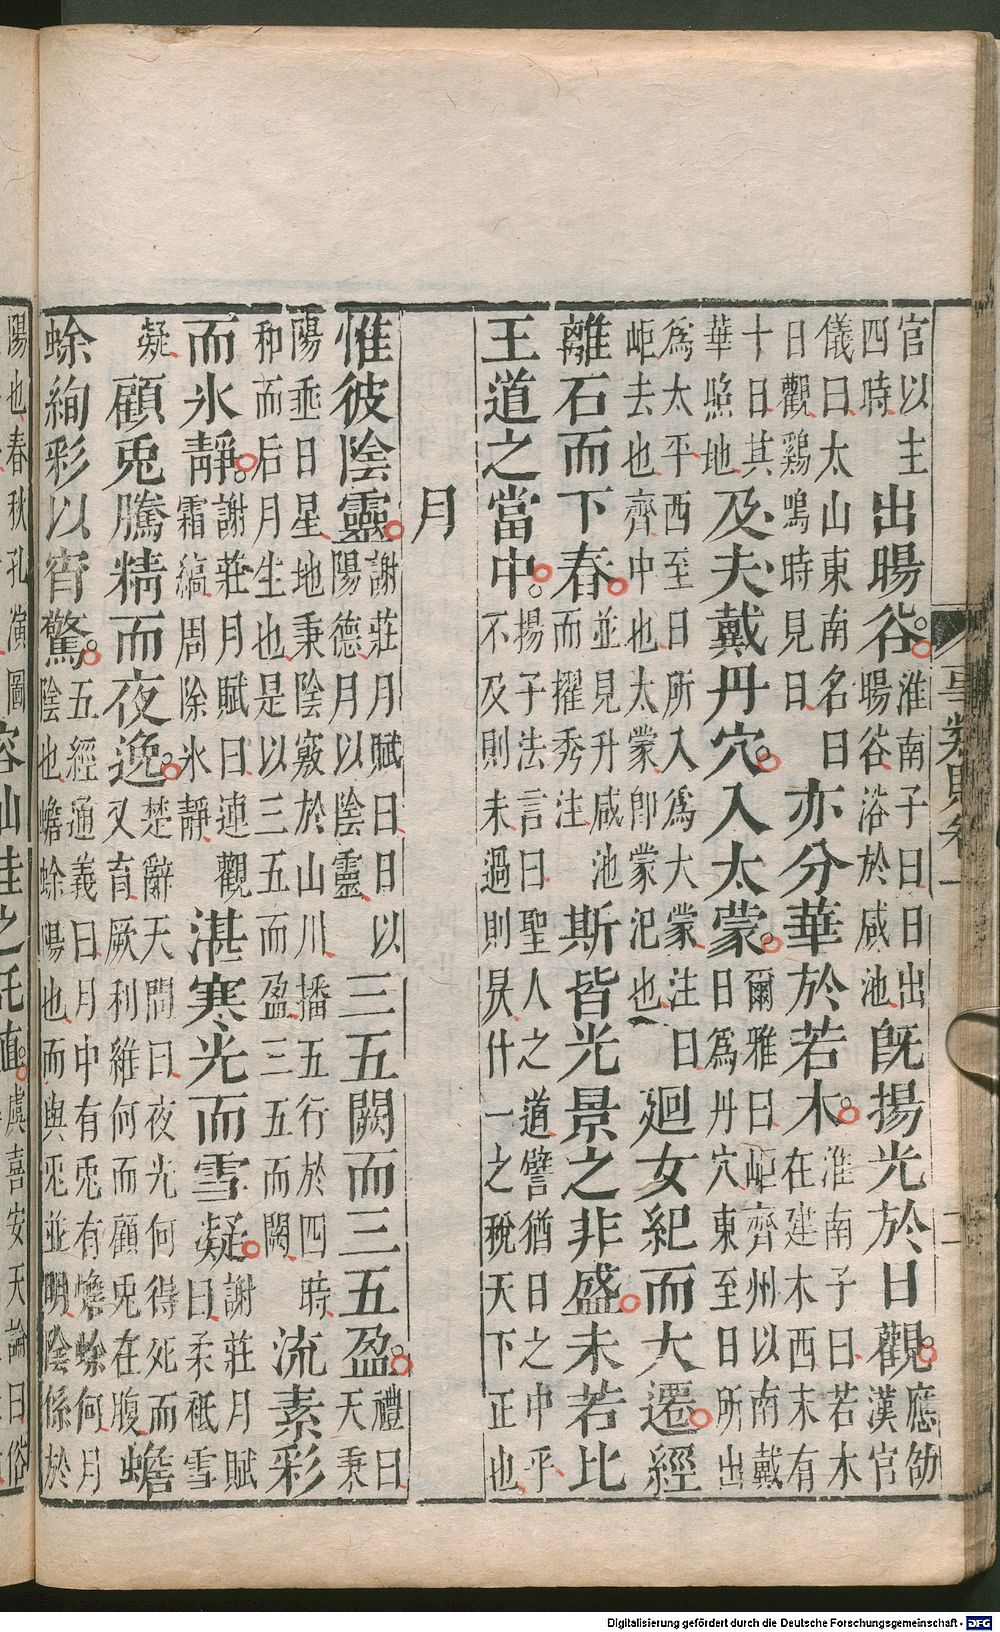 事類賦卷一 二
官以主四時出暘谷。淮南子曰日出暘谷浴於咸池既揚光於日觀。應劭漢官
儀曰太山東南名曰日觀鷄鳴時見日亦分華於若木。淮南子曰若木在建木西末有
十日其華照地及夫戴丹穴。入太蒙。爾雅曰岠齊州以南戴日爲丹穴東至日所出
爲太平西至日所入爲大蒙注曰岠去也齊中也太蒙卽蒙汜也廻女紀而大遷。經
離石而下舂。並見升咸池而擢秀注斯皆光景之非盛。未若比
王道之當中。揚子法言曰聖人之道譬猶日之中乎不及則未過則昃什一之稅天下正也
月
惟彼陰靈。謝莊月賦曰日以陽德月以陰靈三五闕而三五盈。禮曰天秉
陽垂日星地秉陰竅於山川播五行於四時和而后月生也是以三五而盈三五而闕流素彩
而氷靜。謝莊月賦曰連觀霜縞周除氷靜湛寒光而雪凝。謝莊月賦曰柔祇雪
凝顧兎騰精而夜逸。楚辭天問曰夜光何得死而又育厥利維何而顧兎在腹蟾
蜍絢彩以宵驚。五經通義曰月中有兎有蟾蜍何月陰也蟾蜍陽也而與兎並明陰係於
陽也春秋孔演圖 之託植。虞喜安天論曰俗
Digitalisierung gefördert durch die Deutsche Forschungsgemeinschaft - DFG